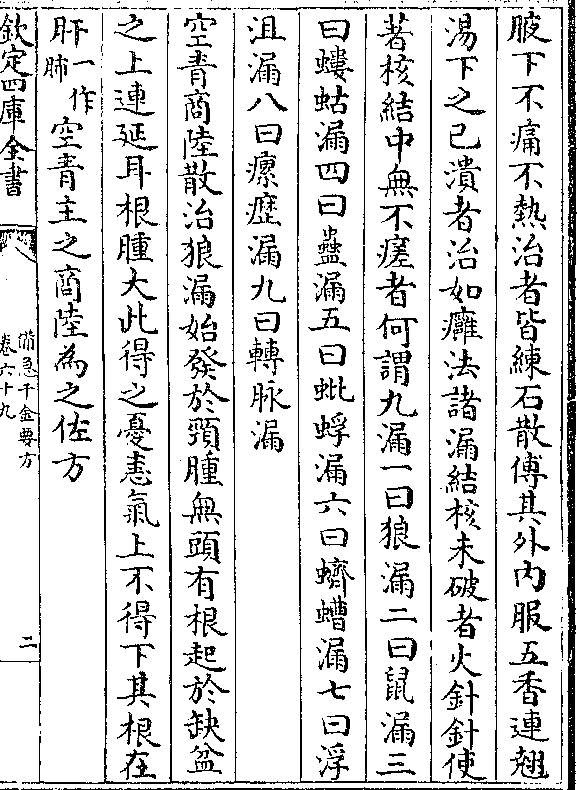 腋下不痛不熱治者皆練石散傅其外内服五香連翹
湯下之已潰者治如癰法諸漏結核未破者火針針使
著核結中無不瘥者何謂九漏一曰狼漏二曰鼠漏三
曰螻蛄漏四曰蠭漏五曰蚍蜉漏六曰蠐螬漏七曰浮
沮漏八曰瘰癧漏九曰轉脉漏
空青商陸散治狼漏始發於頸腫無頭有根起於缺盆
之上連延耳根腫大此得之憂恚氣上不得下其根在
肝一作肺空青主之商陸為之佐方
欽定四庫全書
備急千金要方
卷六十九
二